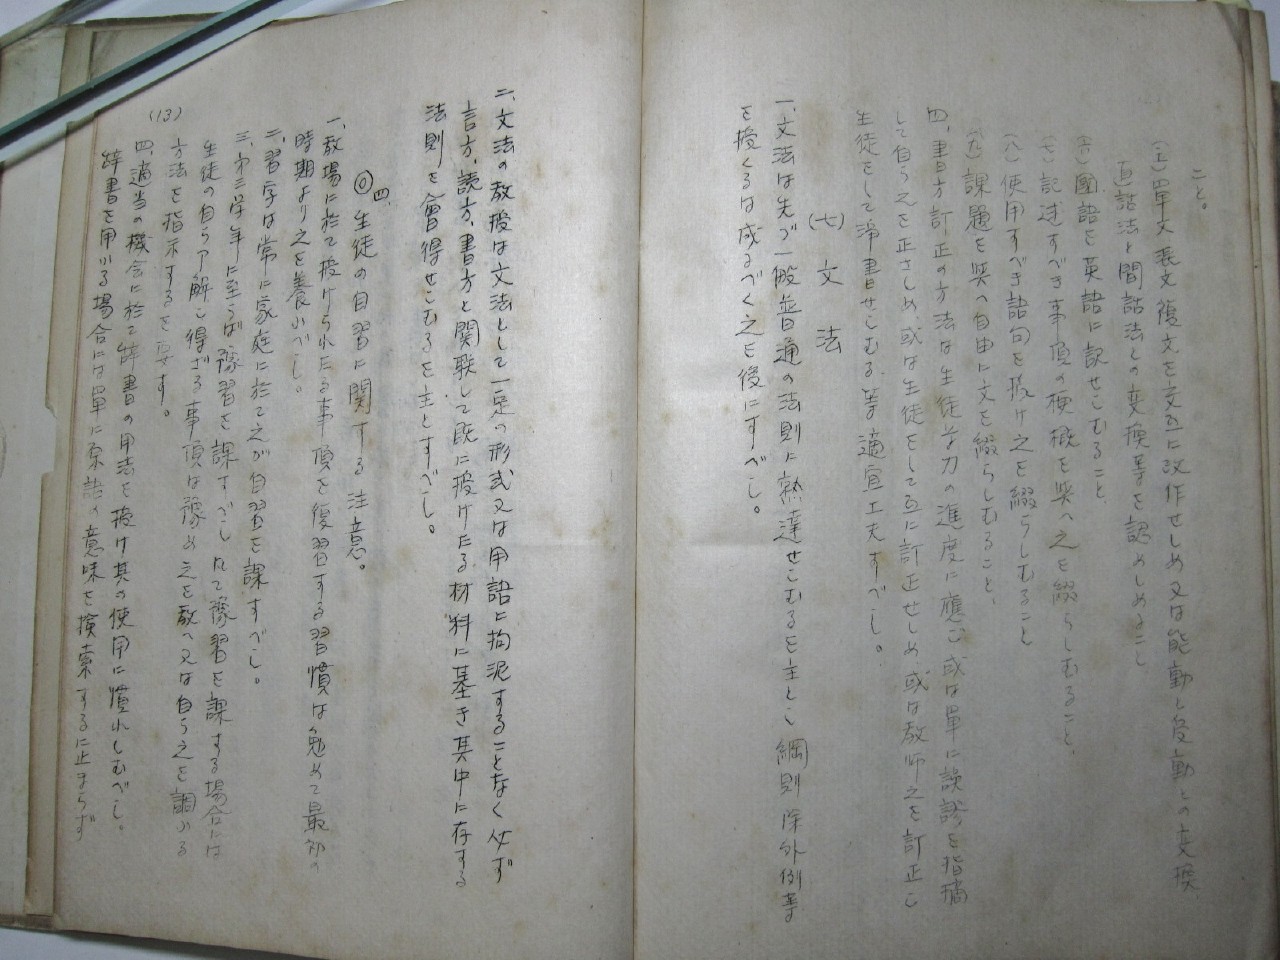 こと。
(五)單文重文複文を交互に改作せしめ又は能動と受動との変換
直話法と間話法との変換等を認めしめること
(六)國語を英語に訳せしむること
(七)記述すべき事項の梗概を與へ之を綴らしむること、
(八)使用すべき語句を授け之を綴らしむること
(九)課題を與へ自由に文を綴らしむること、
四、書方訂正の方法は生徒学力の進度に應じ或は單に誤謬を指摘
して自ら之を正さしめ、或は生徒をして互に訂正せしめ或は教師之を訂正し
生徒をして浄書せしむる等適宜工夫すべし。
(七) 文法
一、文法は先づ一般普通の法則に熟達せしむるを主とし 綱則 除外例等
を授くるは成るべく之を後にすべし。
二、文法の教授は文法として一定の形式又は用語に拘泥することなく必ず
言方、読方、書方と関聯して既に授けたる材料に基き其中に存する
法則を會得せしむるを主とすべし。
◎四、生徒の自習に関する注意。
一、教場に於て授けられたる事項を復習する習慣は勉めて最初の
時期より之を養ふべし。
二、習字は常に家庭に於て之が自習を課すべし。
三、第三学年に至らば豫習を課すべし 凡て豫習を課する場合には
生徒の自ら了解し得ざる事項は豫め之を教へ又は自ら之を調ぶる
方法を指示するを要す。
四、適当の機会に於て辞書の用法を授け其の使用に慣れしむべし。
辞書を用いる場合には單に原語の意味を検索するに止まらず
(13)